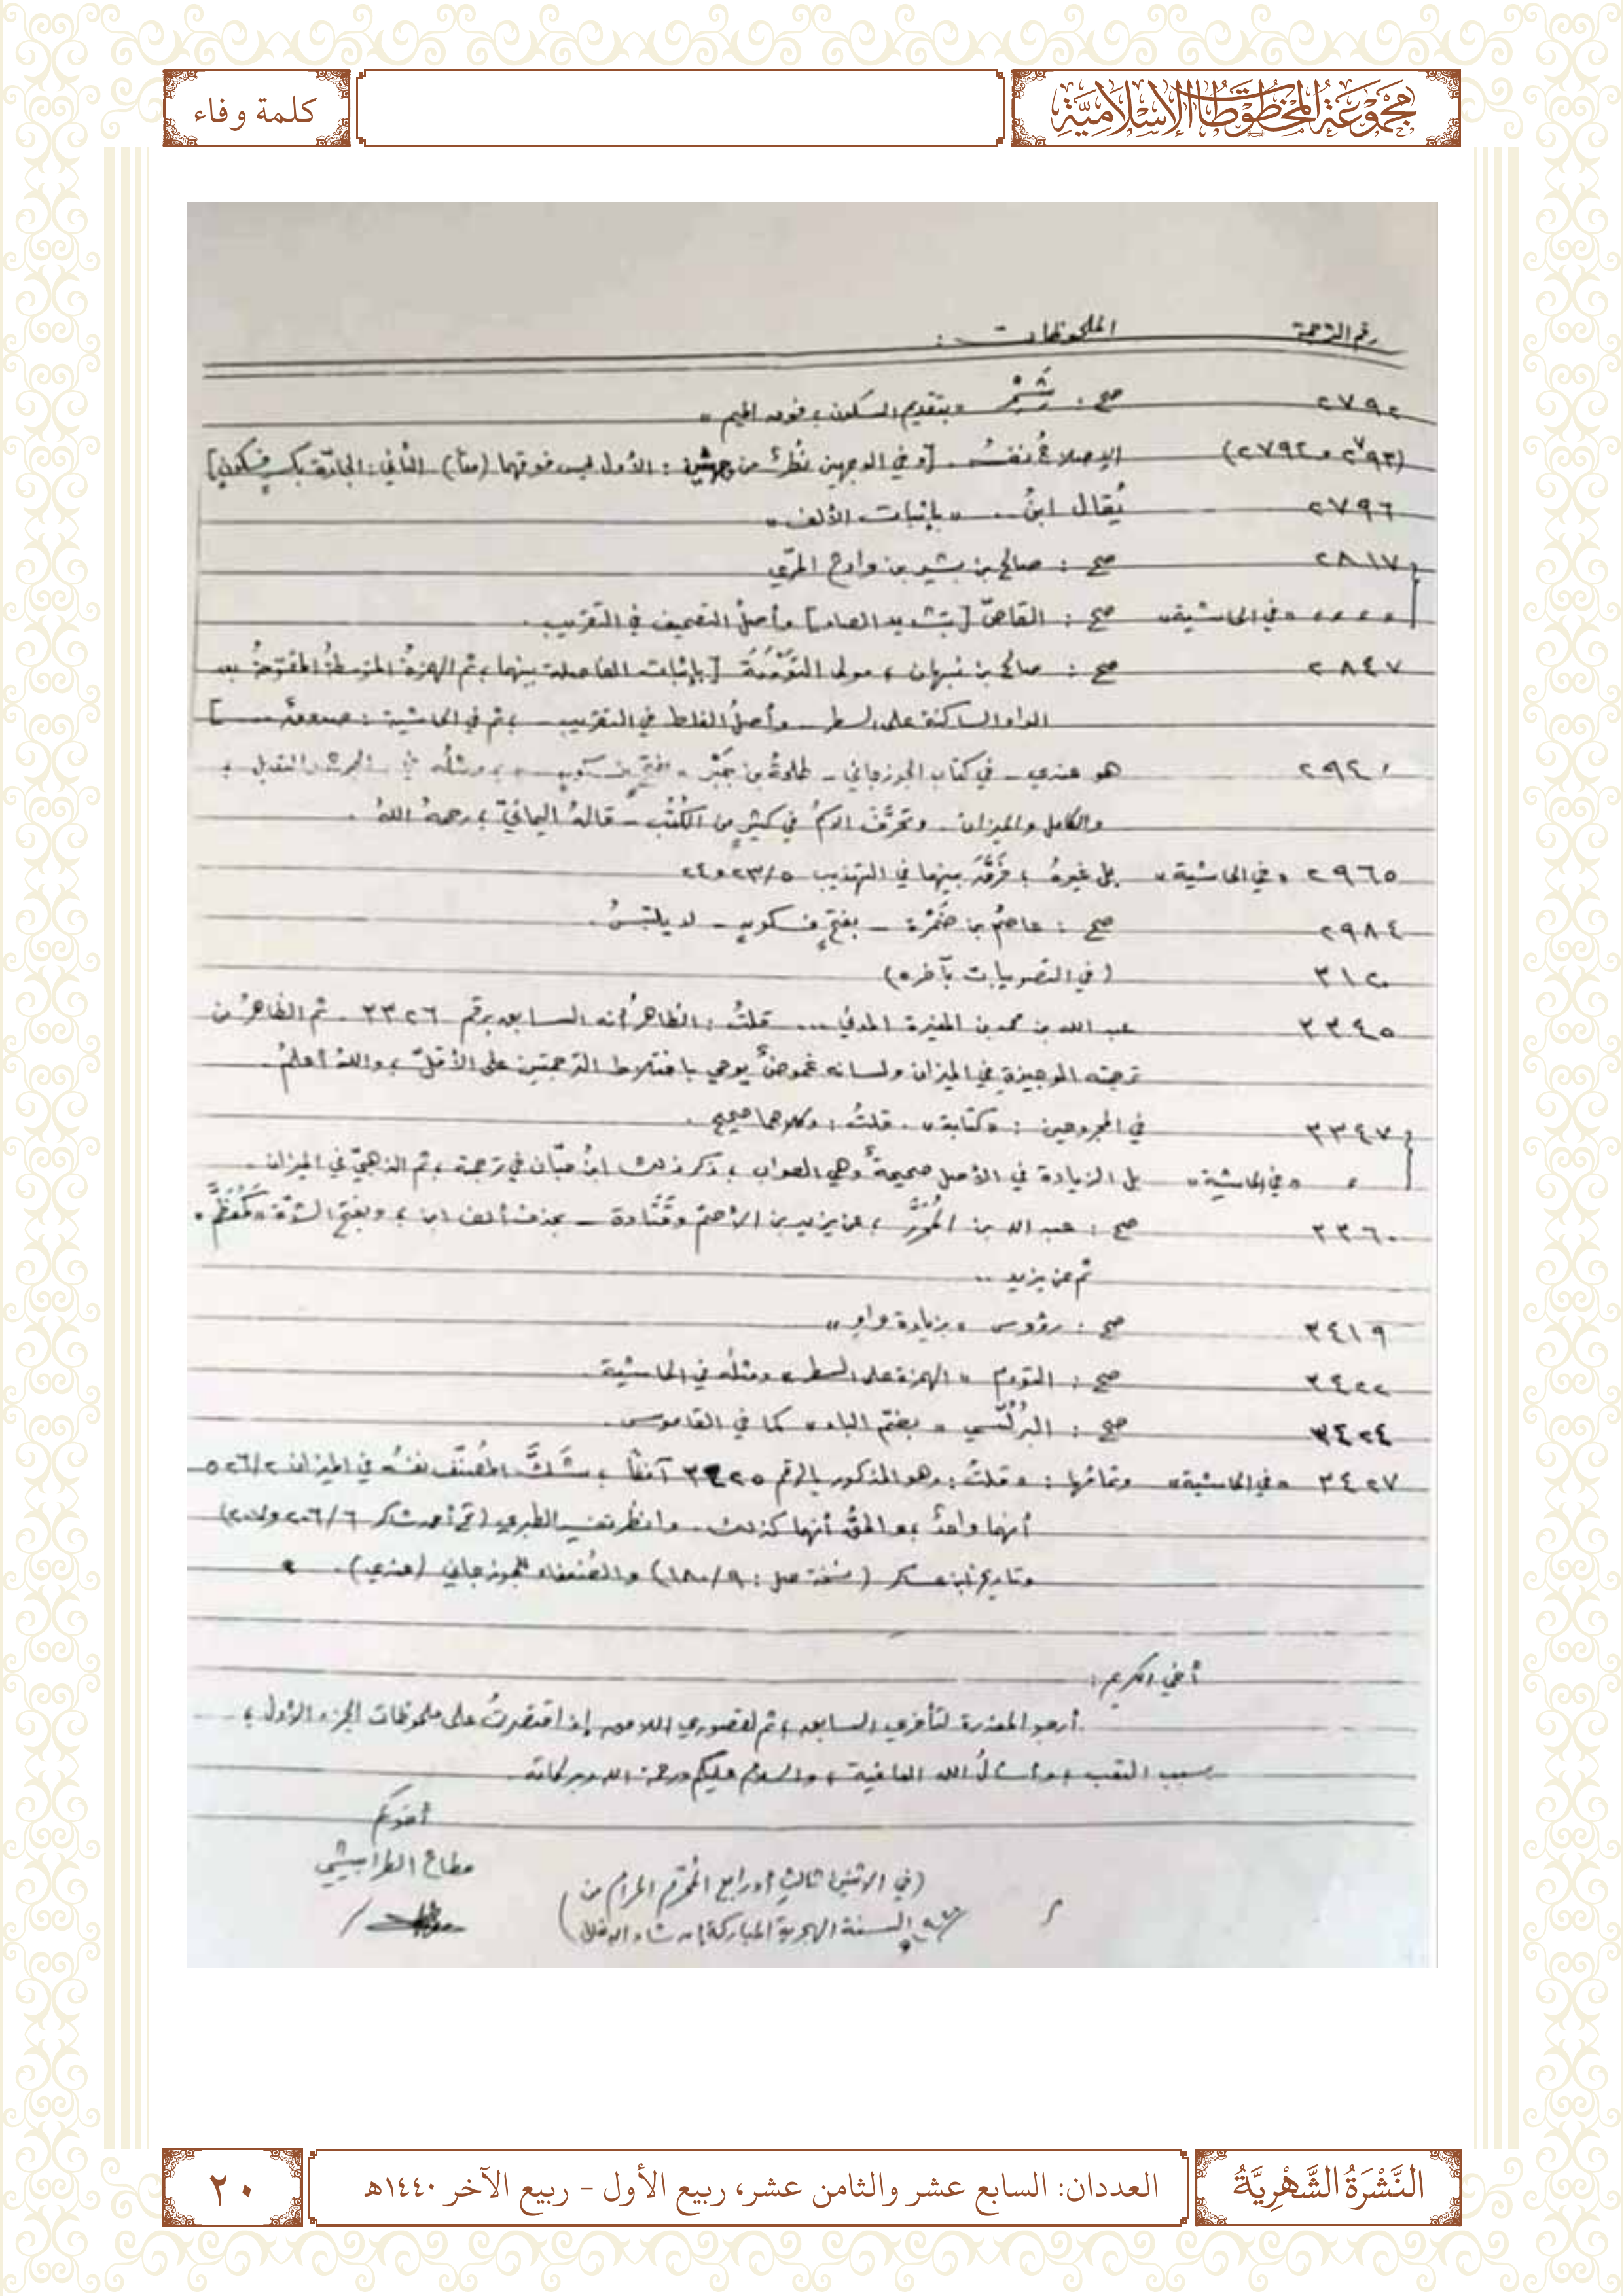 مَجْمُوعَةُ المَخْطُوطَاتِ الإِسْلَامِيَّةِ
كلمة وفاء
رقم الترجمة الملحوظات :
٢٧٩٢ صح : بتقديم السكون ، فوق الميم »
(٢٧٩٣ و ٢٧٩٢) نفسُه . [ وفي الوجهين نظرٌ من جهتين : الأول ليس فوقهما (معًا) الثاني : الجادّة بكسرٍ فسكون ]
٢٧٩٦ يُقال ابنُ .. « بإثبات الألف »
٢٨١٧ صح : صالح بن بشير بن وادع المرّي
« في الحاشية » صح : القاصّ [ بتشديد الصاد ] وأصلُ التصحيف في التقريب .
٢٨٤٧ صح : صالح بن نبهان ، مولى التَوْءَمَة [ بإثبات الفاصلة بينهما ، ثم الهمزةُ المتوسطةُ المفتوحةُ بعد
الواو الساكنة على السطر - وأصلُ الغلط في التقريب - ، ثم في الحاشية : صدوق .. ]
٢٩٤٠ هو عندي - في كتاب الجوزجاني - طلحةُ بن - بفتحٍ فسكون - ، ومثلُه في
والكامل والميزان . وتحرَّفَ الاسمُ في كثيرٍ من الكُتُب - قالهُ اليمانيّ ، رحمهُ اللهُ .
٢٩٦٥ « في الحاشية » بل غيرهُ ، فَرَّقَ بينهما في التهذيب ٢٣/٥ و ٢٤
٢٩٨٤ صح : عاصمُ بن ضَمْرة - بفتحٍ فسكونٍ - لا يلتبسُ .
٣١٢٠ (في التصويبات بآخره)
٣٣٤٥ عبد الله بن محمد بن المغيرة المدني ... قلتُ : الظاهرُ أنه السابق برقم ٣٣٢٦ . ثم الظاهرُ من
ترجمته الموجيزة في الميزان ولسانه غموضٌ يوحي باختلاط الترجمتين على الأقلّ ، واللهُ أعلمُ .
٣٣٤٧ في المجروحين : « كتابة » . قلتُ : وكلاهما صحيح .
« في الحاشية » بل الزيادة في الأصل صحيحةٌ وهي الصواب ، ذكر ذلك ابنُ حبّان في ترجمة ، ثم الذهبيّ في الميزان .
٣٣٦٠ صح : عبد الله بن المُحَرَّر ، عن يزيد بن الأصم وقَتَادة - بحذف ألف ابن ، وبفتح الشدّة « كمُعَظَّم » .
ثم عن يزيد ..
٣٤١٩ صح : رؤوس « بزيادة واو »
٣٤٢٢ صح : التوءم « الهمزة على السطر » ومثلُه في الحاشية .
٣٤٢٤ صح : البُرُلُّسي « بضمّ الباء » كما في القاموس .
٣٤٢٧ « في الحاشية » وتمامُها : « قلتُ : وهو المذكور بالرقم ٣٤٢٥ آنفًا ، شَكَّ المُصنّف نفسُه في الميزان ٥٢٦/٢
أنهما واحدٌ ، والحقُّ أنهما كذلك . وانظر تفسير الطبري (تح أحمد شاكر ٢٠٦/٦ و ٢٠٧)
وتاريخ ابن عساكر ( نسخة : ١٨٠/٩) والضُعفاء للجوزجاني (عندي) . »
أخي الكريم :
أرجو المعذرة لتأخري السابق ، ثم لقصوري اللاحق إذ اقتصرتُ على ملحوظات الجزء الأول ؛
بسبب التعب ، وأسألُ الله العافية ، والسلام عليكم ورحمة الله وبركاته .
أخوكم
مطاع الطرابيشي
(في الاثنين ثالث أو رابع المُحرّم الحرام من
السنة الهجرية المباركة إن شاء الله)
النَّشْرَةُ الشَّهْرِيَّةُ
العددان: السابع عشر والثامن عشر، ربيع الأول - ربيع الآخر ١٤٤٠هـ
٢٠